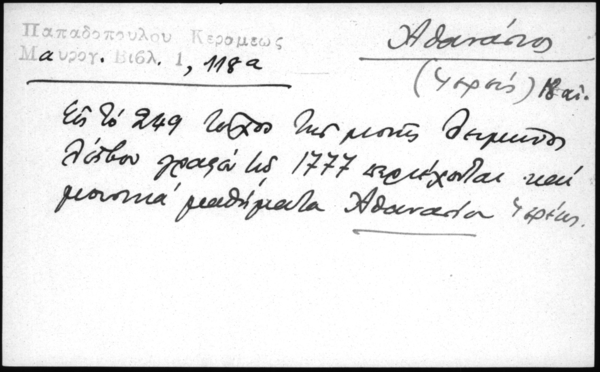 Παπαδοπούλου Κεραμέως
Μαυρογ. Βιβλ. 1, 118α
Ἀθανάσιος
(Ἱερεύς) 18 αἰ.
Εἰς τὸ 249 τεῦχος τῆς μονῆς Λειμῶνος
Λέσβου γραφὲν τῷ 1777 περιέχονται καὶ
μουσικά μαθήματα Ἀθανασίου Ἱερέως.